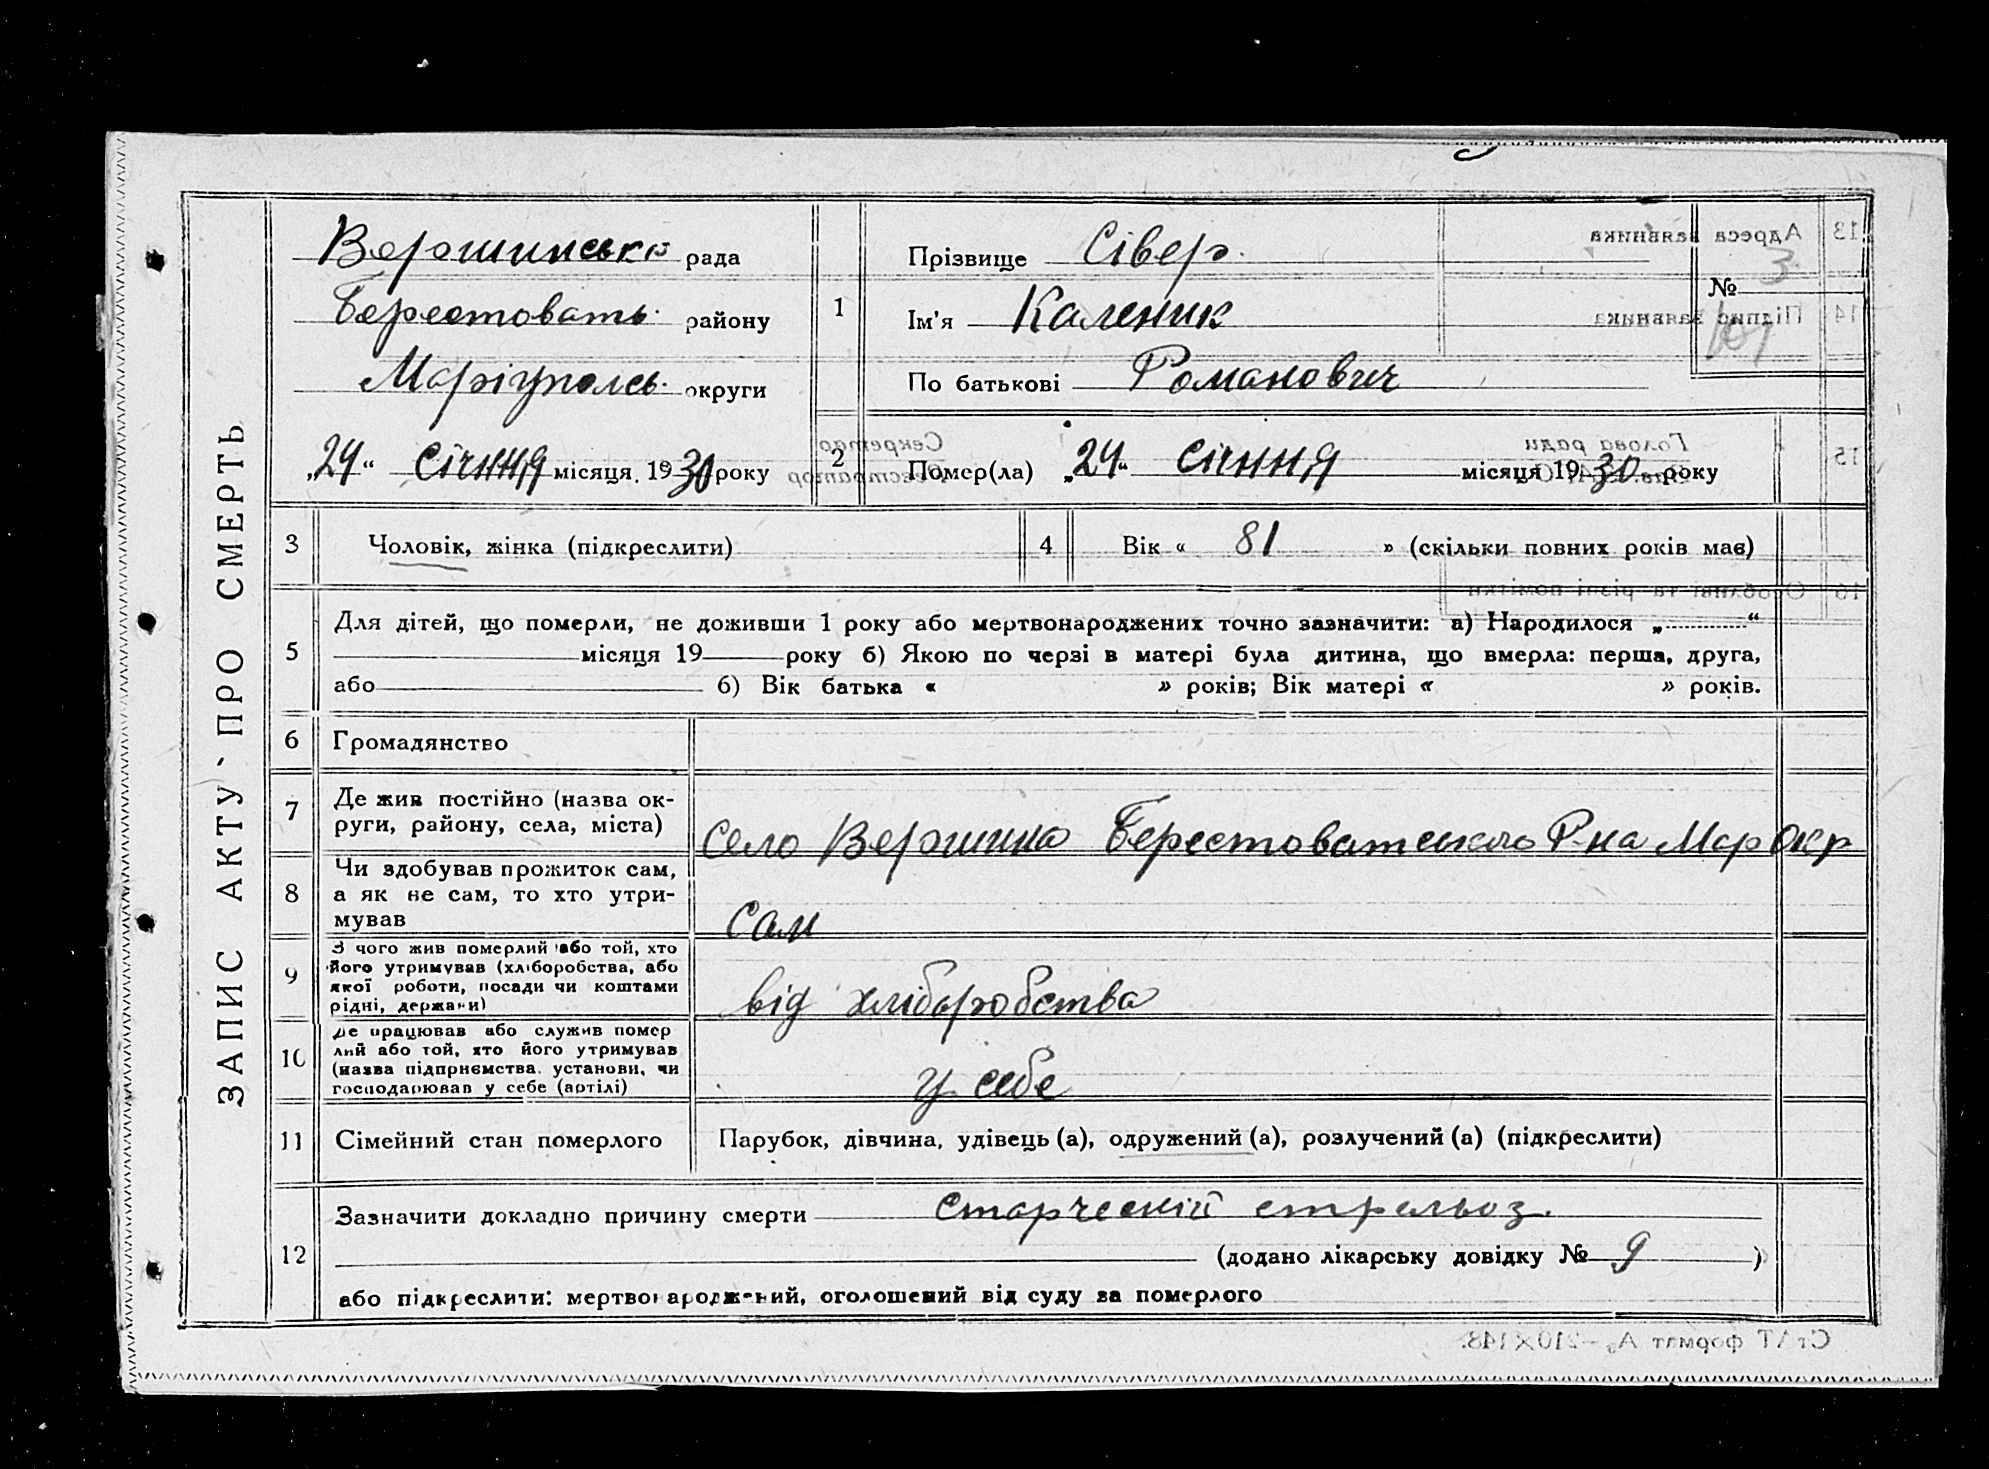 ЗАПИС АКТУ ПРО СМЕРТЬ
Вершинська рада
Берестовать. району
Маріуполсь. округи
„24“ січння місяця 1930 року
1
Прізвище Сівер.
Ім'я Каленик
По батькові Романович
№ 3
2
Помер(ла) „24“ січння місяця 1930 року
3 Чоловік, жінка (підкреслити)
4 Вік « 81 » (скільки повних років має)
5 Для дітей, що померли, не доживши 1 року або мертвонароджених точно зазначити: а) Народилося „ “
місяця 19 року б) Якою по черзі в матері була дитина, що вмерла: перша, друга,
або б) Вік батька « » років; Вік матері « » років.
6 Громадянство
7 Де жив постійно (назва ок-
руги, району, села, міста)
село Вершина Берестоватського Р-на Мар Окр
8 Чи здобував прожиток сам,
а як не сам, то хто утри-
мував
Сам
9 З чого жив померлий або той, хто
його утримував (хліборобства, або
якої роботи, посади чи коштами
рідні, держави)
від хліборобства
10 Де працював або служив помер
лий або той, хто його утримував
(назва підприємства, установи, чи
господарював у себе (артілі)
у себе
11 Сімейний стан померлого
Парубок, дівчина, удівець (а), одружений (а), розлучений (а) (підкреслити)
12 Зазначити докладно причину смерти Старческій
(додано лікарську довідку № 9 )
або підкреслити: мертвонароджений, оголошений від суду за померлого
13 Адреса заявника
14 Підпис заявника
15 Голова ради
Секретар
16 Особливі та різні помітки
СтАТ формат А₅—210×148.